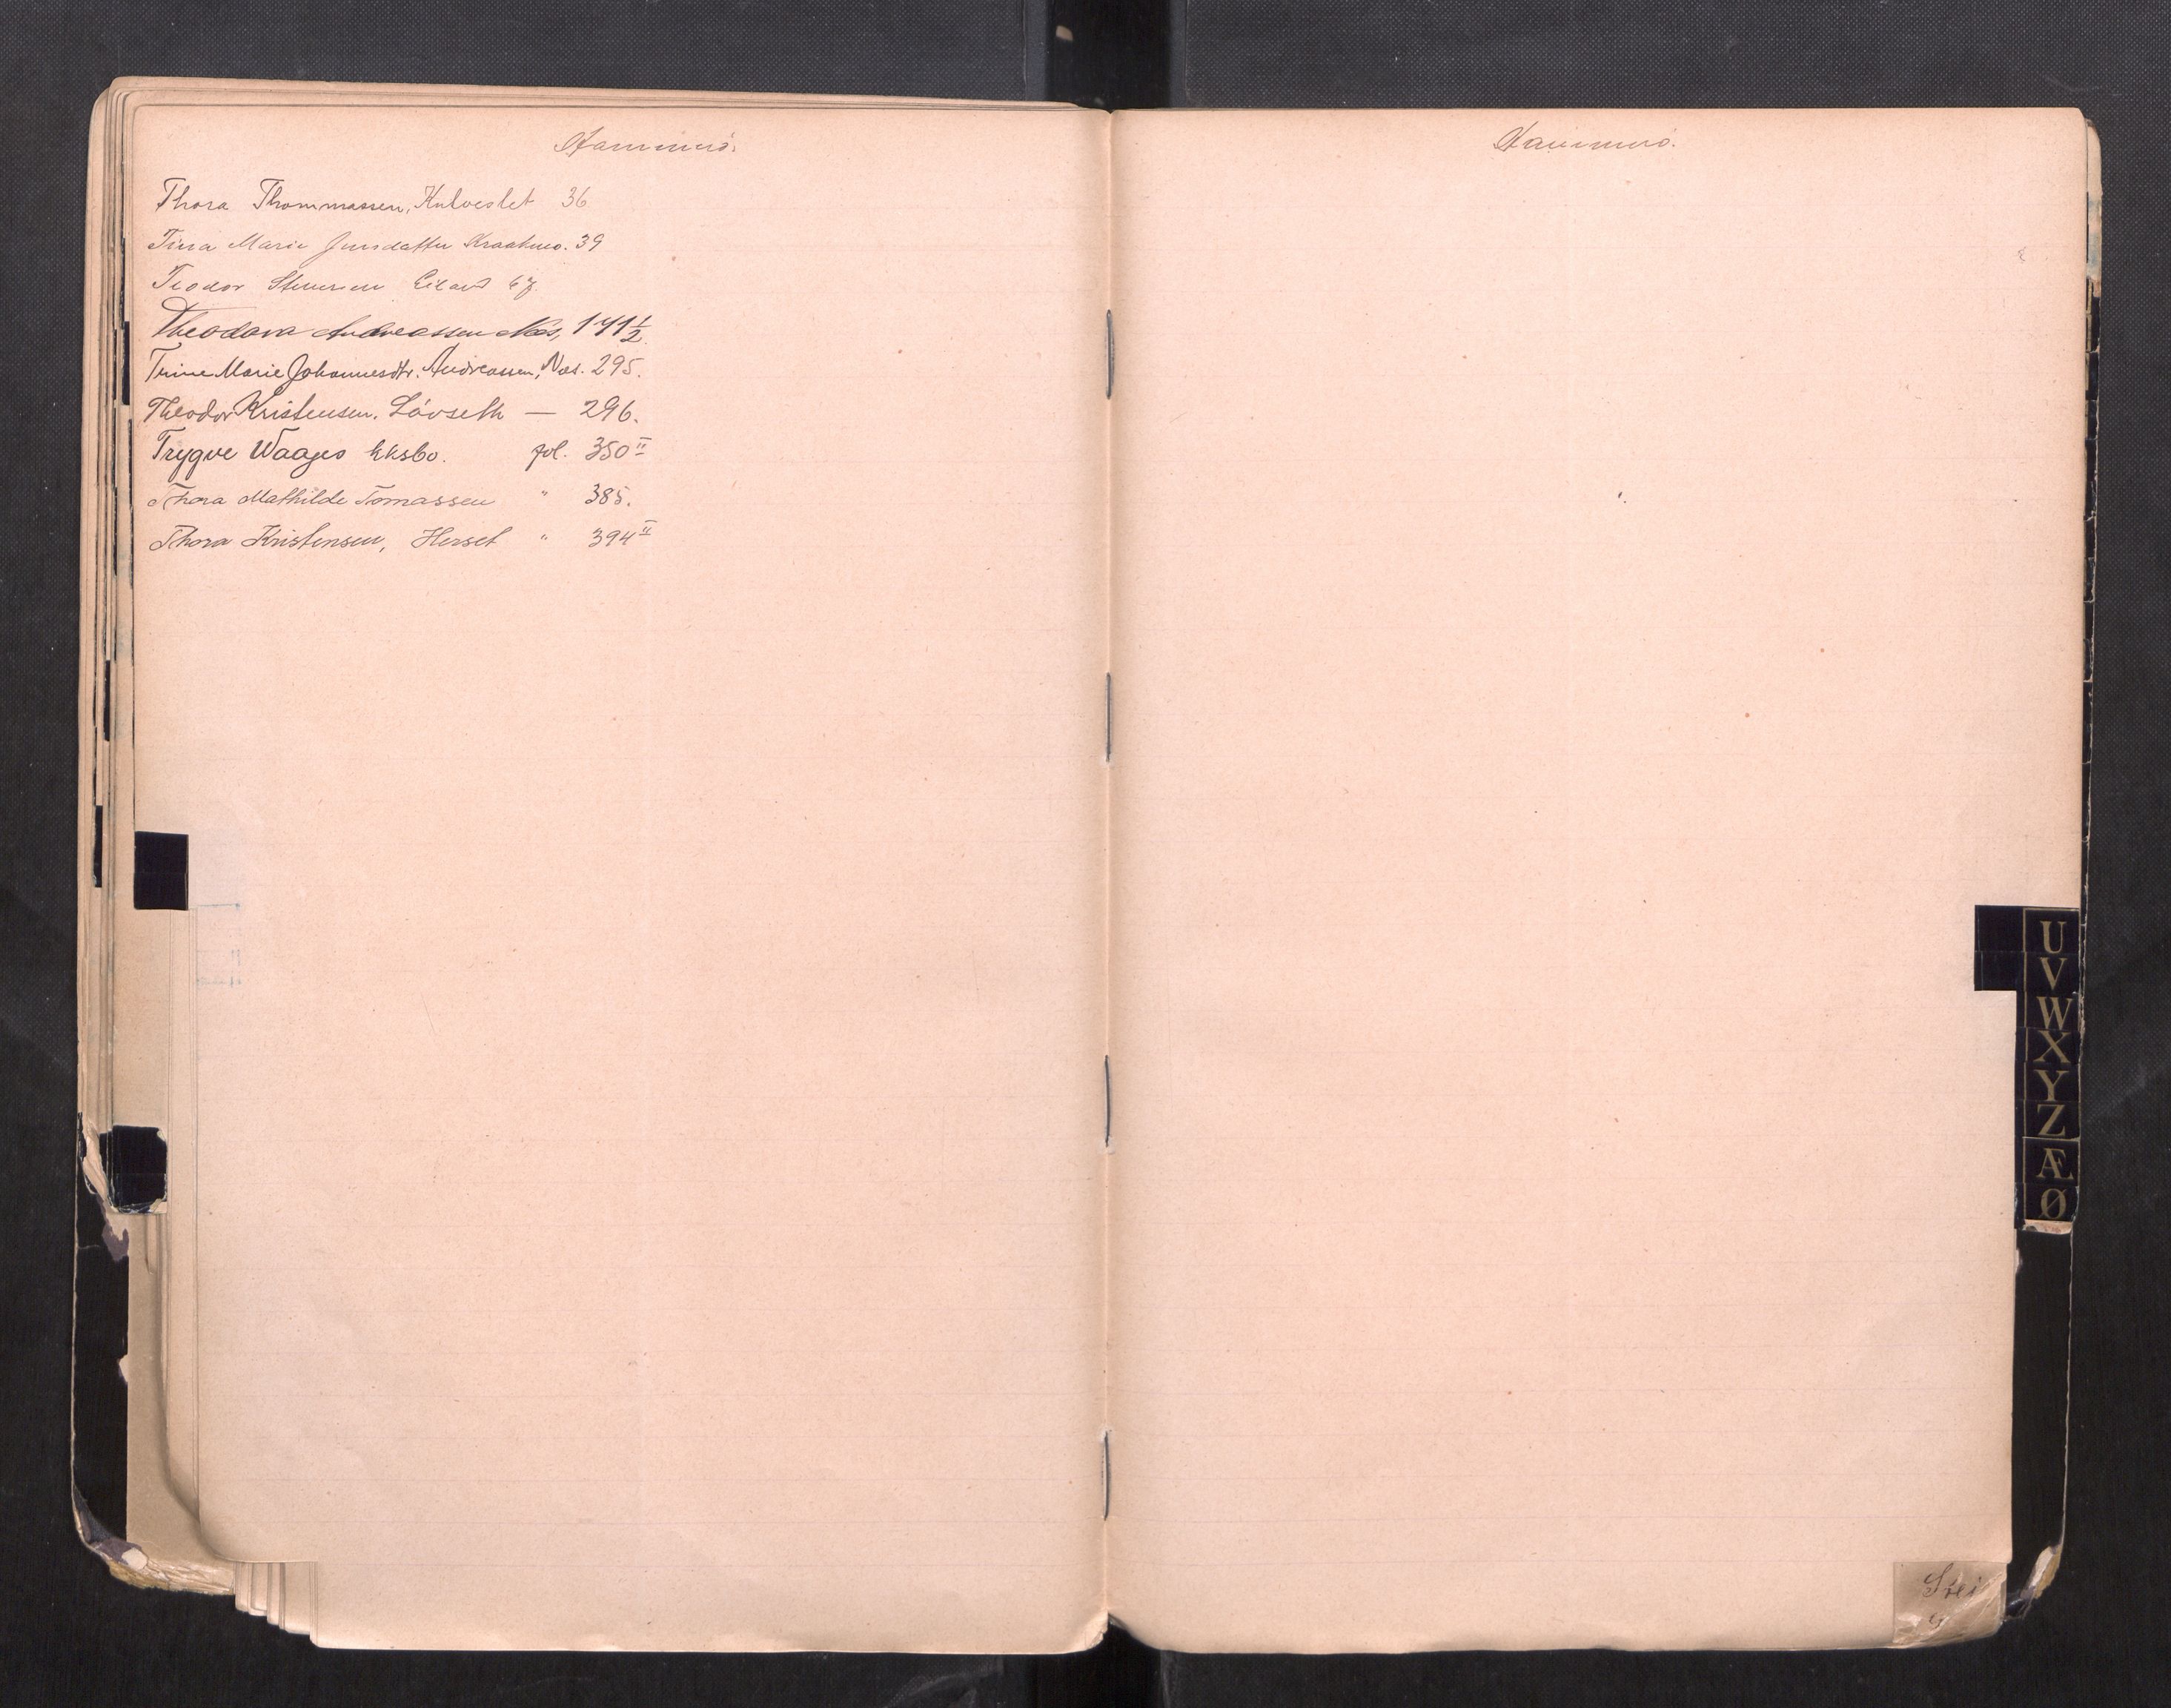 Hammerö.
Thora Thommassen, Kulveslet 36
Tina Marie Jensdatter Kraakmo. 39
Teodor Stenersen Eiland 67.
Theodora Andreassen Næs, 171½
Trine Marie Johannesdtr. Andreassen, Næs. 295.
Theodor Kristensen. Lövseth — 296.
Trygve Waages Eksbo. fol. 350 II
Thora Mathilde Tomassen " 385.
Thora Kristensen, Herset " 394 II
Hammerö.
U
V
W
X
Y
Z
Æ
Ø